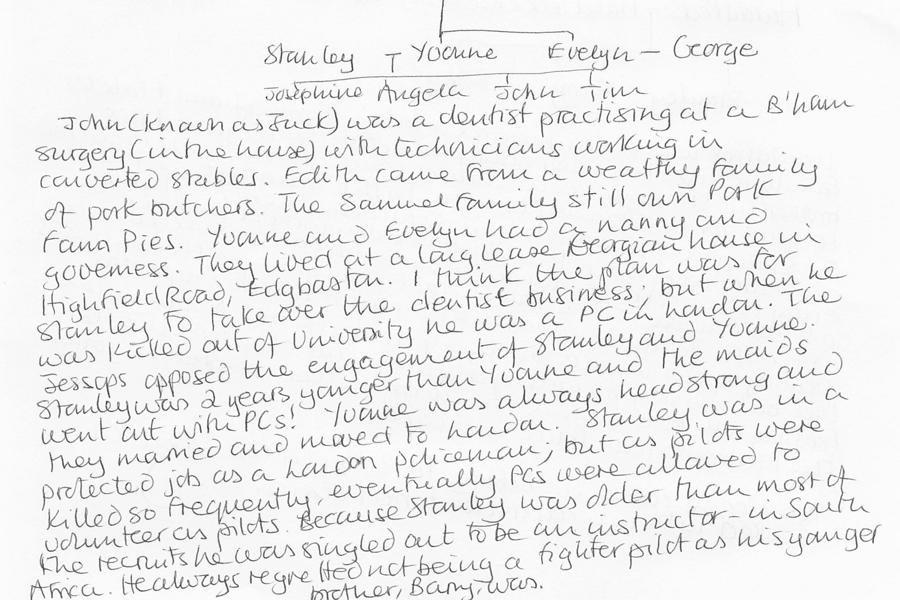 Stanley T Yvonne Evelyn - George
Josephine Angela John Tim
John (known as Jack) was a dentist practising at a B'ham
surgery (in the house) with technicians working in
converted stables. Edith came from a wealthy family
of pork butchers. The Samuel family still own Pork
Farm Pies. Yvonne and Evelyn had a nanny and
governess. They lived at a long lease Georgian house in
Highfield Road, Edgbaston. I think the plan was for
Stanley to take over the dentist business, but when he
was kicked out of University he was a PC in London. The
Jessops opposed the engagement of Stanley and Yvonne.
Stanley was 2 years younger than Yvonne and the maids
went out with PCs! Yvonne was always headstrong and
they married and moved to London. Stanley was in a
protected job as a London policeman, but as pilots were
killed so frequently, eventually PCs were allowed to
volunteer as pilots. Because Stanley was older than most of
the recruits he was singled out to be an instructor - in South
Africa. He always regretted not being a fighter pilot as his younger
brother, Barry, was.